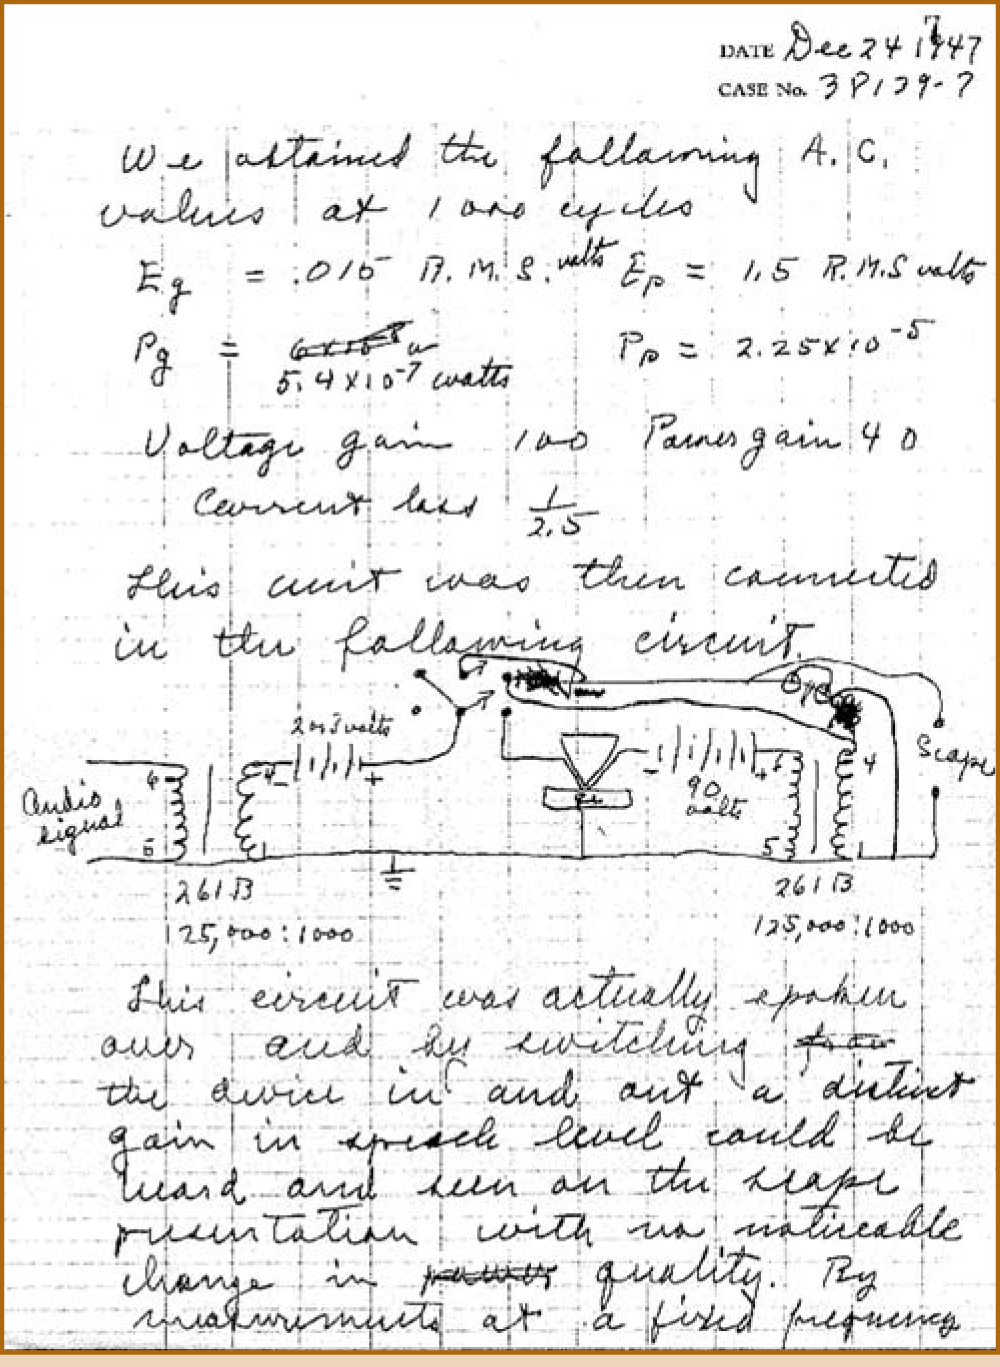 DATE Dec 24 1947
7
CASE No. 38139-7
We obtained the following A.C.
values at 1000 cycles
Eg = .015 R.M.S. volts Ep = 1.5 R.M.S volts
Pg = 6 x 10⁻⁸ w Pp = 2.25 x 10⁻⁵
5.4 x 10⁻⁷ watts
Voltage gain 100 Power gain 40
Current loss 1/2.5
This unit was then connected
in the following circuit.
2 or 3 volts
Scope
6 4 - + - + 6 4
Audio signal
90 volts
Ge
6 1 5 1
261 B 261 B
125,000:1000 125,000:1000
This circuit was actually spoken
over and by switching
the device in and out a distinct
gain in speech level could be
heard and seen on the scope
presentation with no noticeable
change in quality. By
measurements at a fixed frequency